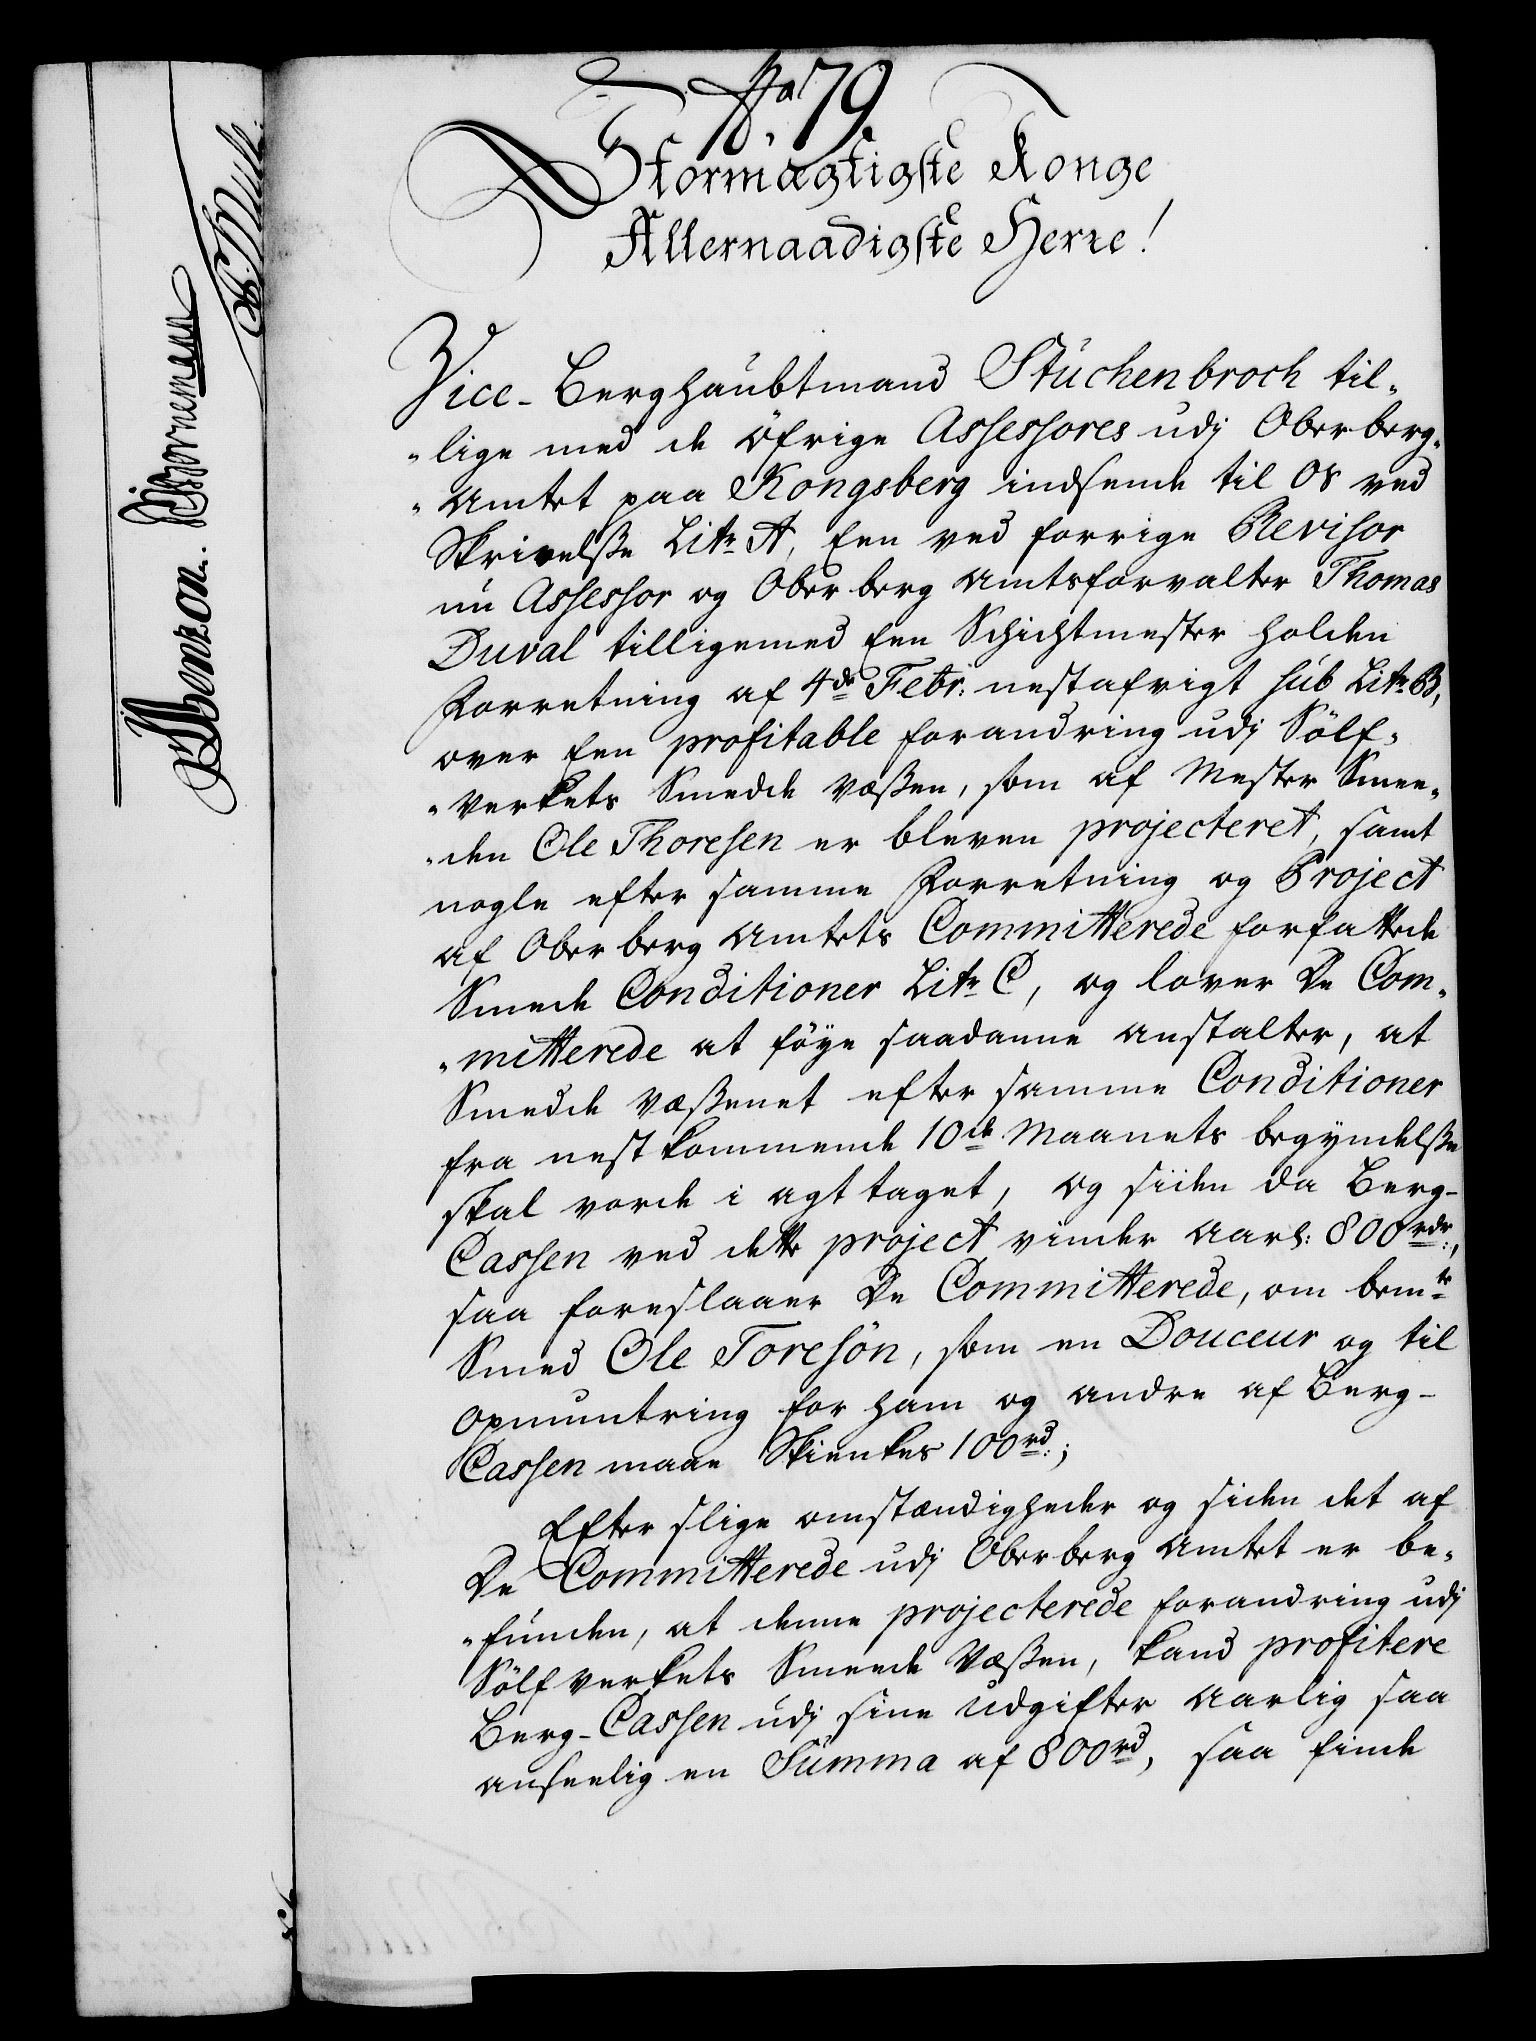 No. 79.
Stormægtigste Konge
Allernaadigste Herre!
Vice-Berghaubtmand Stuckenbrock til„
„lige med de øfrige Assessores udj Oberberg„
„Amtet paa Kongsberg indsende til os ved
Skrivelsse Litr A, Een ved forrige Revisor
nu Assessor og Oberberg Amtsforvalter Thomas
Duval tilligemed Een Schichtmester holden
Forretning af 4de Febr: nestafvigt sub Litr B,
over Een profitable forandring udj Sölf„
„Verkets Smedde Væssen, som af Mester Smee„
„den Ole Thoresen er bleven projecteret, samt
nogle efter samme Forretning og Project
af Oberberg Amtets Committerede forfattede
Smede Conditioner Litr C, og lover De Com„
„mitterede at föye saadanne anstalter, at
Smedde Væssenet efter samme Conditioner
fra nestkommende 10de Maanets begyndelsse
skal vorde i agt taget, og siden da Berg-
Cassen ved dette project vinder Aarl: 800rdr:,
saa foreslaaer De Committerede, om bemte
Smed Ole Toresön, som en Douceur og til
opmuntring for ham og andre af Berg-
Cassen maae Skienkes 100rd:;
Efter slige omstændigheder og siden det af
De Committerede udj Oberberg Amtet er be„
„funden, at denne projecterede forandring udj
Sölfverkets Smede Væssen, kand profitere
Berg-Cassen udj sine Udgifter Aarlig saa
anseelig en Summa af 800rd, saa finde
Benzon. Bornemann